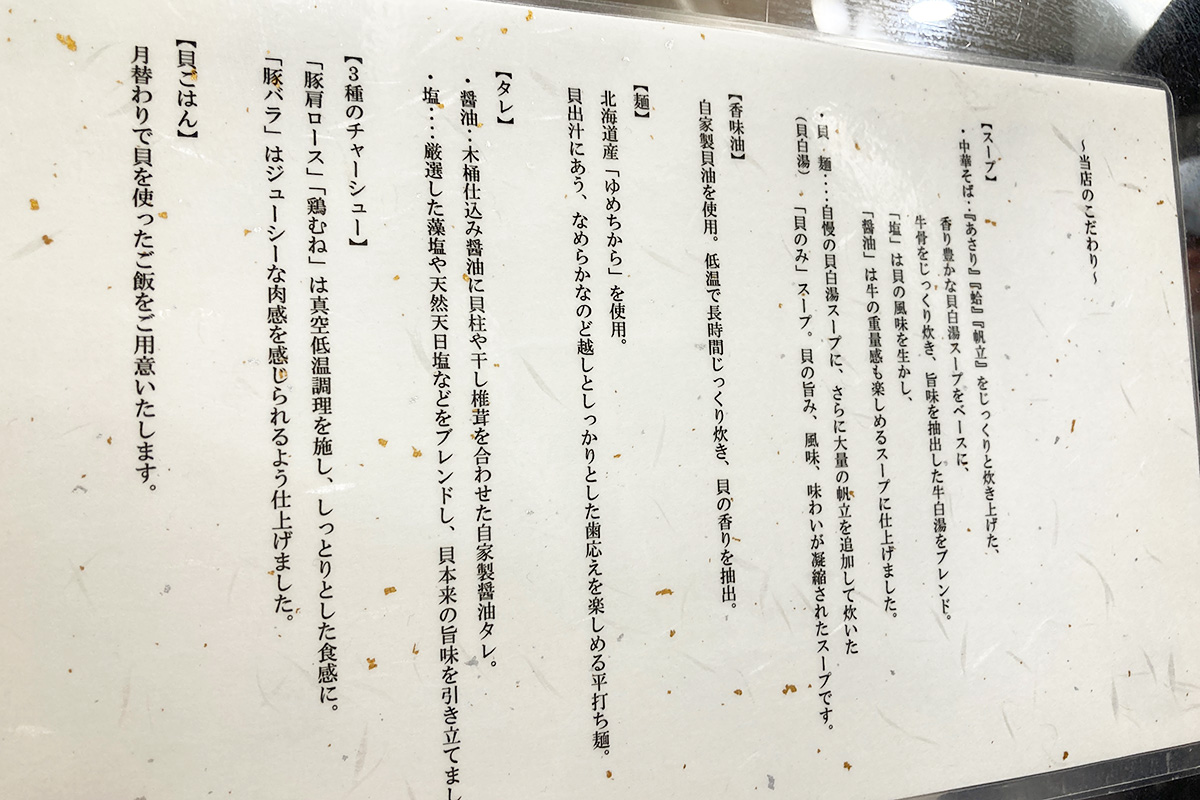 ～当店のこだわり～
【スープ】
・中華そば‥『あさり』『蛤』『帆立』をじっくりと炊き上げた、
香り豊かな貝白湯スープをベースに、
牛骨をじっくり炊き、旨味を抽出した牛白湯をブレンド。
「塩」は貝の風味を生かし、
「醤油」は牛の重量感も楽しめるスープに仕上げました。
・貝 麺‥‥自慢の貝白湯スープに、さらに大量の帆立を追加して炊いた
（貝白湯）「貝のみ」スープ。貝の旨み、風味、味わいが凝縮されたスープです。
【香味油】
自家製貝油を使用。低温で長時間じっくり炊き、貝の香りを抽出。
【麺】
北海道産「ゆめちから」を使用。
貝出汁にあう、なめらかなのど越しとしっかりとした歯応えを楽しめる平打ち麺。
【タレ】
・醤油‥木桶仕込み醤油に貝柱や干し椎茸を合わせた自家製醤油タレ。
・塩‥‥厳選した藻塩や天然天日塩などをブレンドし、貝本来の旨味を引き立てまし
【３種のチャーシュー】
「豚肩ロース」「鶏むね」は真空低温調理を施し、しっとりとした食感に。
「豚バラ」はジューシーな肉感を感じられるよう仕上げました。
【貝ごはん】
月替わりで貝を使ったご飯をご用意いたします。